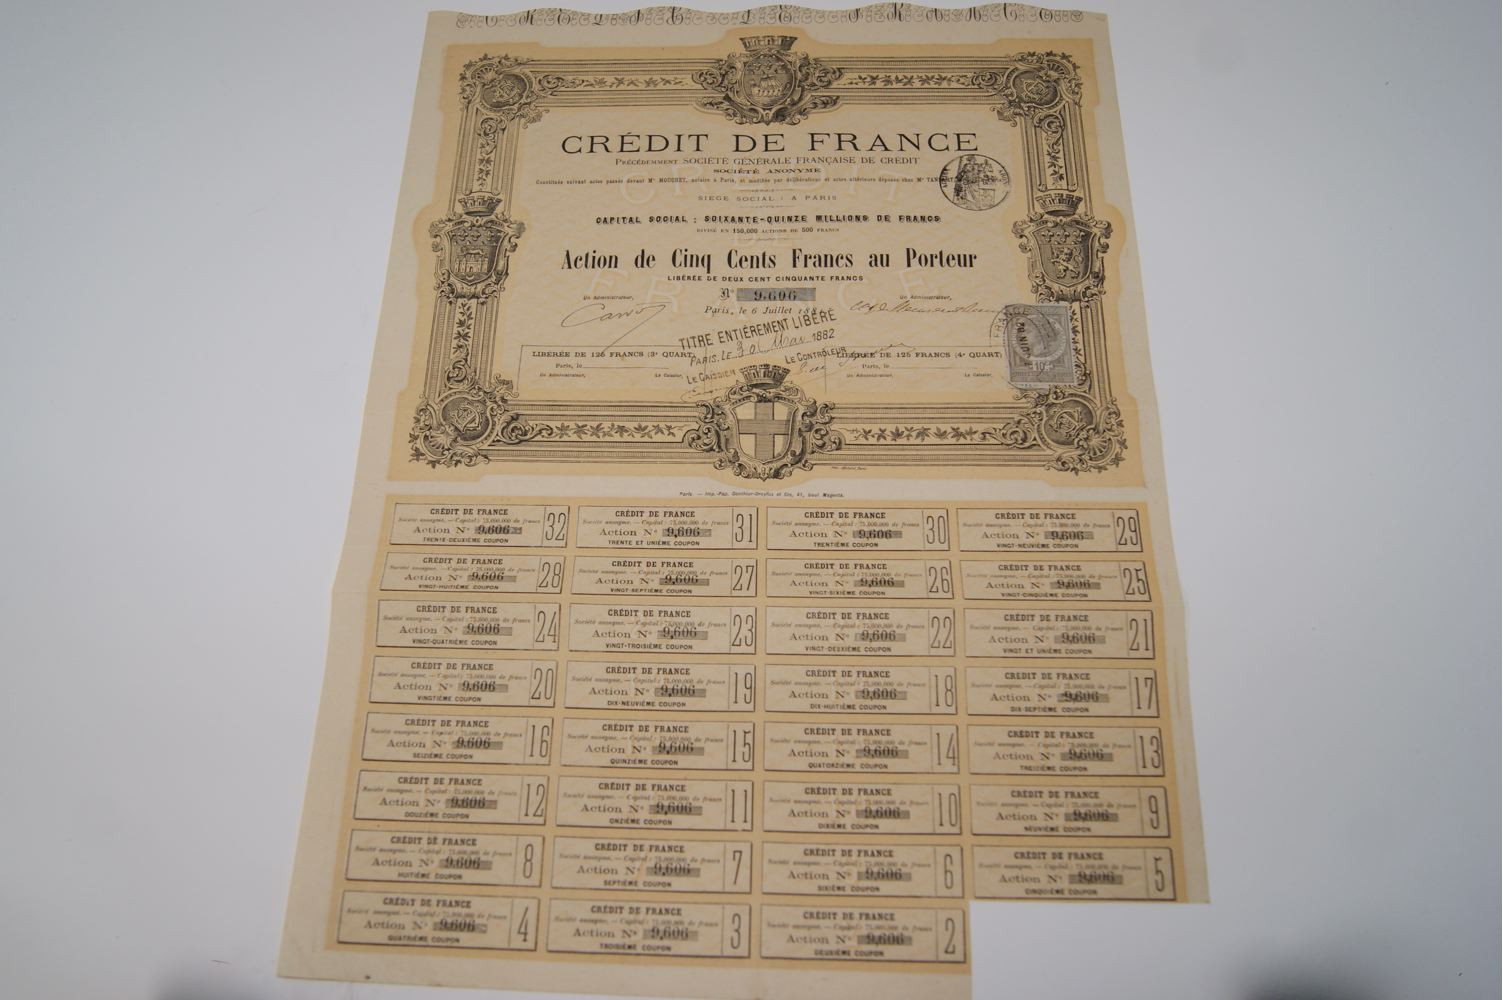 CRÉDIT DE FRANCE
PRÉCÉDEMMENT SOCIÉTÉ GÉNÉRALE FRANÇAISE DE CRÉDIT
SOCIÉTÉ ANONYME
Constituée suivant actes passés devant Me MOCQUET, notaire à Paris, et modifiée par délibérations et actes ultérieurs déposés chez Me
SIEGE SOCIAL : A PARIS
CAPITAL SOCIAL : SOIXANTE-QUINZE MILLIONS DE FRANCS
DIVISÉ EN 150,000 ACTIONS DE 500 FRANCS
Action de Cinq Cents Francs au Porteur
LIBÉRÉE DE DEUX CENT CINQUANTE FRANCS
No 9,606
Un Administrateur, Un Administrateur,
Paris, le 6 Juillet
TITRE ENTIÈREMENT LIBÉRÉ
PARIS, LE 30 Mai 1882
LE CAISSIER LE CONTRÔLEUR
LIBÉRÉE DE 125 FRANCS (3e QUART)
Paris, le
Un Administrateur, Le Caissier,
LIBÉRÉE DE 125 FRANCS (4e QUART)
Paris, le
Un Administrateur, Le Caissier,
FRANCE
10c
Paris — Imp.-Pap. Gunthier-Dreyfus et Cie, 41, boul Magenta.
CRÉDIT DE FRANCE
Société anonyme. — Capital : 75,000,000 de francs
Action No 9,606
TRENTE-DEUXIÈME COUPON
32
CRÉDIT DE FRANCE
Société anonyme. — Capital : 75,000,000 de francs
Action No 9,606
TRENTE ET UNIÈME COUPON
31
CRÉDIT DE FRANCE
Société anonyme. — Capital : 75,000,000 de francs
Action No 9,606
TRENTIÈME COUPON
30
CRÉDIT DE FRANCE
Société anonyme. — Capital : 75,000,000 de francs
Action No 9,606
VINGT-NEUVIÈME COUPON
29
CRÉDIT DE FRANCE
Société anonyme. — Capital : 75,000,000 de francs
Action No 9,606
VINGT-HUITIÈME COUPON
28
CRÉDIT DE FRANCE
Société anonyme. — Capital : 75,000,000 de francs
Action No 9,606
VINGT-SEPTIÈME COUPON
27
CRÉDIT DE FRANCE
Société anonyme. — Capital : 75,000,000 de francs
Action No 9,606
VINGT-SIXIÈME COUPON
26
CRÉDIT DE FRANCE
Société anonyme. — Capital : 75,000,000 de francs
Action No 9,606
VINGT-CINQUIÈME COUPON
25
CRÉDIT DE FRANCE
Société anonyme. — Capital : 75,000,000 de francs
Action No 9,606
VINGT-QUATRIÈME COUPON
24
CRÉDIT DE FRANCE
Société anonyme. — Capital : 75,000,000 de francs
Action No 9,606
VINGT-TROISIÈME COUPON
23
CRÉDIT DE FRANCE
Société anonyme. — Capital : 75,000,000 de francs
Action No 9,606
VINGT-DEUXIÈME COUPON
22
CRÉDIT DE FRANCE
Société anonyme. — Capital : 75,000,000 de francs
Action No 9,606
VINGT ET UNIÈME COUPON
21
CRÉDIT DE FRANCE
Société anonyme. — Capital : 75,000,000 de francs
Action No 9,606
VINGTIÈME COUPON
20
CRÉDIT DE FRANCE
Société anonyme. — Capital : 75,000,000 de francs
Action No 9,606
DIX-NEUVIÈME COUPON
19
CRÉDIT DE FRANCE
Société anonyme. — Capital : 75,000,000 de francs
Action No 9,606
DIX-HUITIÈME COUPON
18
CRÉDIT DE FRANCE
Société anonyme. — Capital : 75,000,000 de francs
Action No 9,606
DIX-SEPTIÈME COUPON
17
CRÉDIT DE FRANCE
Société anonyme. — Capital : 75,000,000 de francs
Action No 9,606
SEIZIÈME COUPON
16
CRÉDIT DE FRANCE
Société anonyme. — Capital : 75,000,000 de francs
Action No 9,606
QUINZIÈME COUPON
15
CRÉDIT DE FRANCE
Société anonyme. — Capital : 75,000,000 de francs
Action No 9,606
QUATORZIÈME COUPON
14
CRÉDIT DE FRANCE
Société anonyme. — Capital : 75,000,000 de francs
Action No 9,606
TREIZIÈME COUPON
13
CRÉDIT DE FRANCE
Société anonyme. — Capital : 75,000,000 de francs
Action No 9,606
DOUZIÈME COUPON
12
CRÉDIT DE FRANCE
Société anonyme. — Capital : 75,000,000 de francs
Action No 9,606
ONZIÈME COUPON
11
CRÉDIT DE FRANCE
Société anonyme. — Capital : 75,000,000 de francs
Action No 9,606
DIXIÈME COUPON
10
CRÉDIT DE FRANCE
Société anonyme. — Capital : 75,000,000 de francs
Action No 9,606
NEUVIÈME COUPON
9
CRÉDIT DE FRANCE
Société anonyme. — Capital : 75,000,000 de francs
Action No 9,606
HUITIÈME COUPON
8
CRÉDIT DE FRANCE
Société anonyme. — Capital : 75,000,000 de francs
Action No 9,606
SEPTIÈME COUPON
7
CRÉDIT DE FRANCE
Société anonyme. — Capital : 75,000,000 de francs
Action No 9,606
SIXIÈME COUPON
6
CRÉDIT DE FRANCE
Société anonyme. — Capital : 75,000,000 de francs
Action No 9,606
CINQUIÈME COUPON
5
CRÉDIT DE FRANCE
Société anonyme. — Capital : 75,000,000 de francs
Action No 9,606
QUATRIÈME COUPON
4
CRÉDIT DE FRANCE
Société anonyme. — Capital : 75,000,000 de francs
Action No 9,606
TROISIÈME COUPON
3
CRÉDIT DE FRANCE
Société anonyme. — Capital : 75,000,000 de francs
Action No 9,606
DEUXIÈME COUPON
2